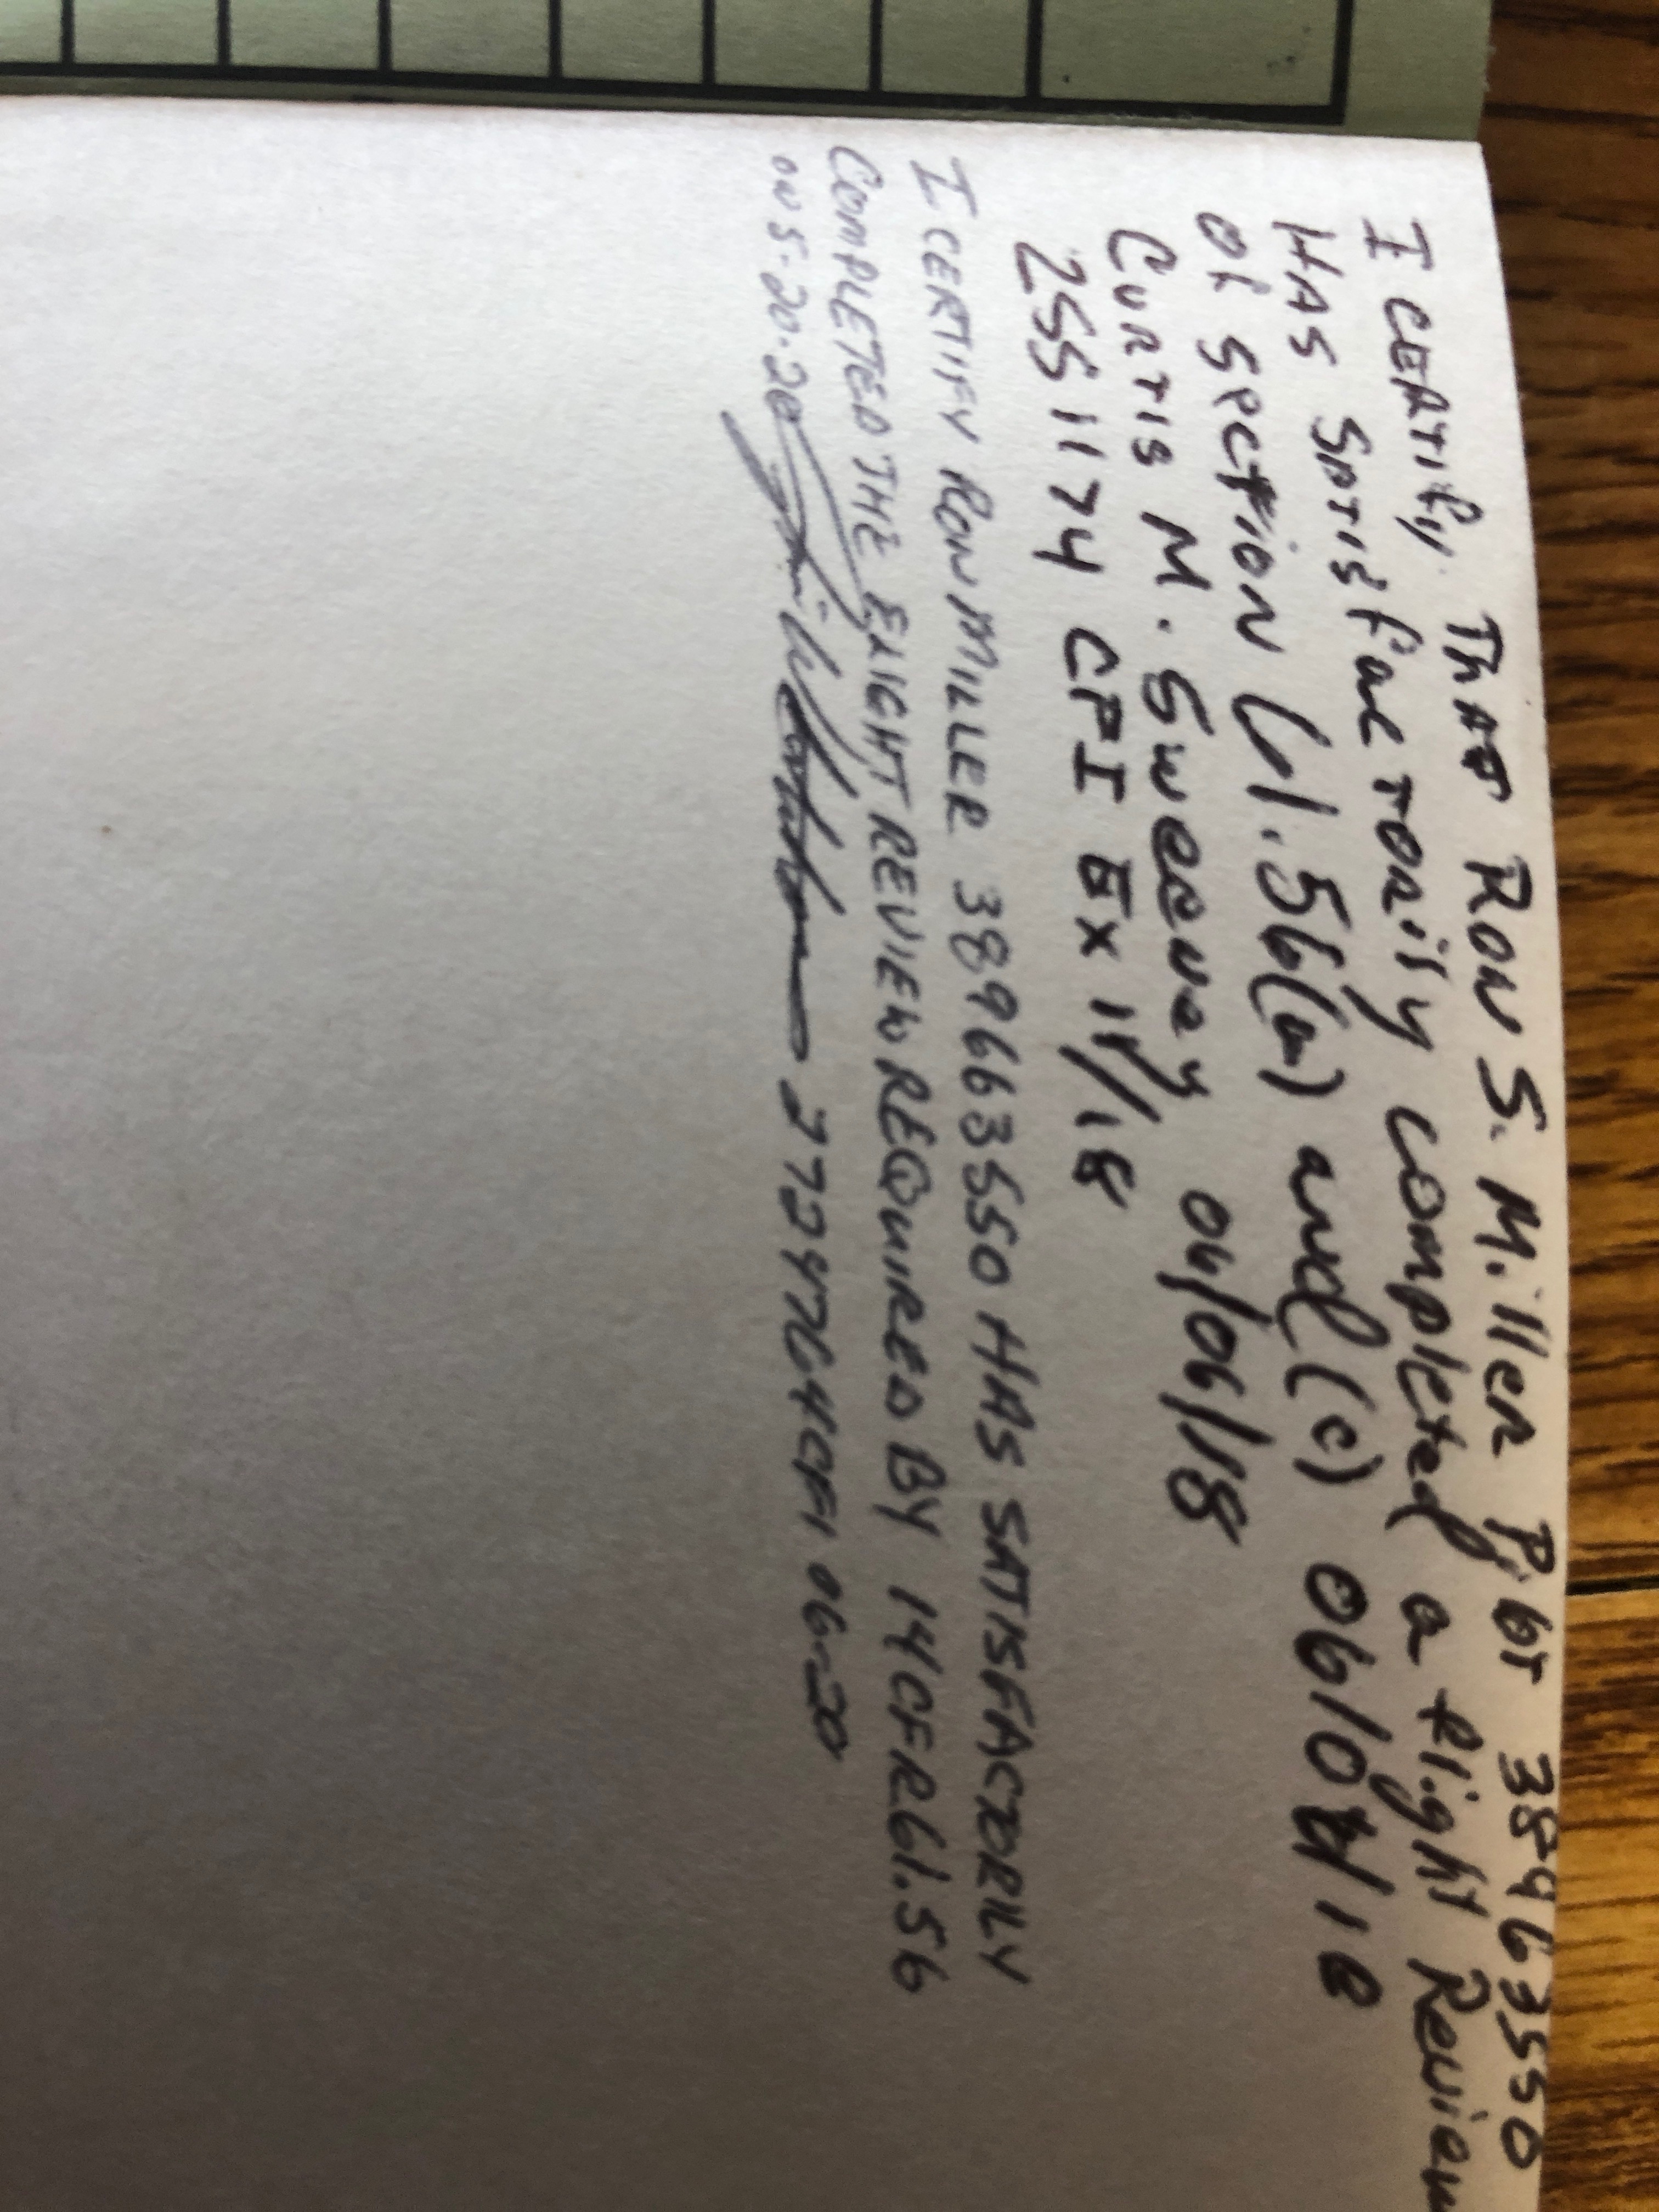 I certify That Ron S. Miller Pilot 389663550
HAS Satisfactorily completed a flight Review
of section 61.56(a) and (c) 06/04/18
Curtis M. Sweeney 04/06/18
2551174 CFI Ex 11/18
I CERTIFY RON MILLER 389663550 HAS SATISFACTORILY
COMPLETED THE FLIGHT REVIEW REQUIRED BY 14CFR61.56
ON 5-20-20 2724764CFI 06-20